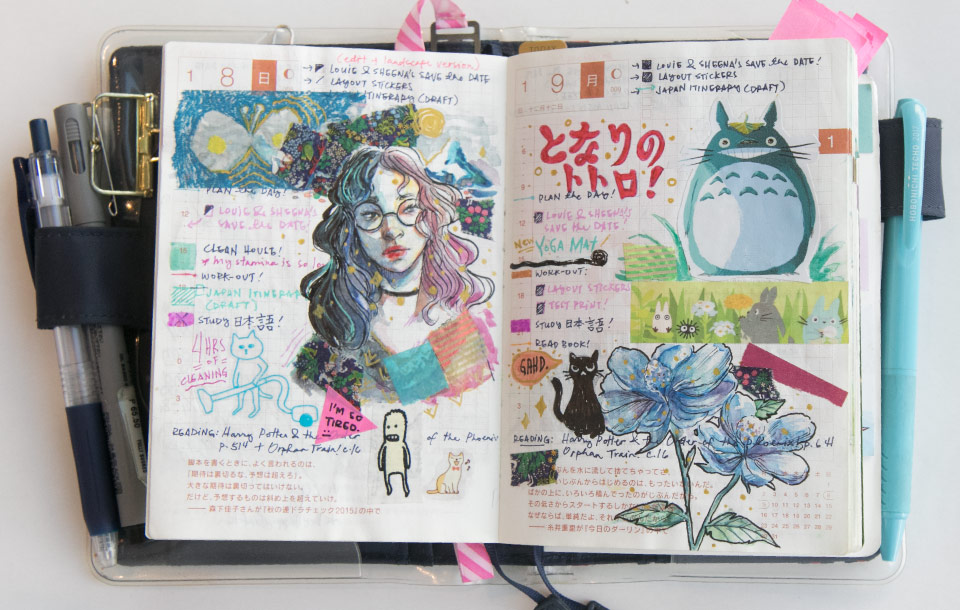 (edit + landscape version)
1 8 日
→ LOUIE & SHEENA'S SAVE the DATE
→ LAYOUT STICKERS
ITINERARY (DRAFT)
PLAN the DAY!
LOUIE & SHEENA'S
SAVE the DATE!
CLEAN HOUSE!
my stamina is so lo
WORK-OUT!
JAPAN ITINERAR
(DRAFT)
STUDY 日本語!
4 HRS
OF
CLEANING
I'M SO
TIRED.
READING: Harry Potter & the
of the Phoenix
p. 514 + Orphan Train c.16
脚本を書くときに、よく言われるのは、
「期待は裏切るな、予想は超えろ」。
大きな期待は裏切ってはいけない。
だけど、予想するものは斜め上を超えていけ。
── 森下佳子さんが『秋の連ドラチェック2015』の中で
TODAY
1 9 月
→ LOUIE & SHEENA'S SAVE the DATE!
→ LAYOUT STICKERS
→ JAPAN ITINERARY (DRAFT)
1
となりの
トトロ!
PLAN the DAY!
LOUIE & SHEENA'S
SAVE the DATE!
NEW YOGA MAT
WORK-OUT!
LAYOUT STICKERS
TEST PRINT!
STUDY 日本語!
READ BOOK!
GAHD.
READING: Harry Potter & the Order of the Phoenix pp. 641
Orphan Train c.16
ぶんを水に流して捨てちゃって、
いじぶんからはじめるのは、もったいないんだ。
ばかの上に、いろいろ積んでったのがじぶんだから。
その低さからスタートするしか
なぜならば、単純だよ、それ
── 糸井重里が『今日のダーリン』の中で
HOBONICHI TECHO